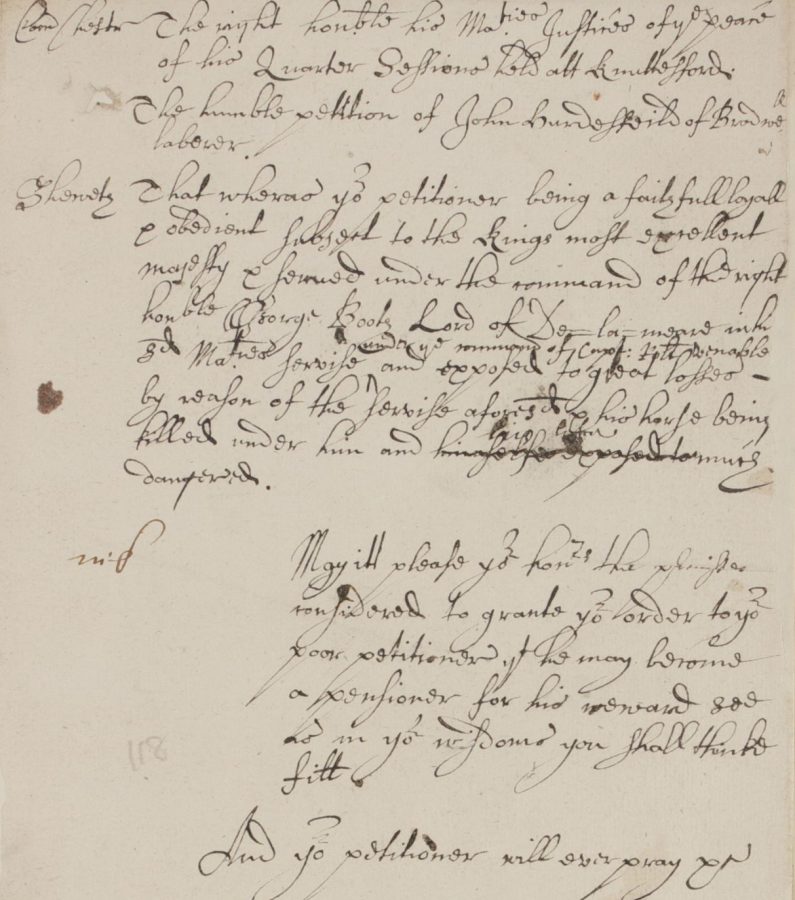 Com Cestr The right honble his Maties Justices of ye peace
of his Quarter Sessions held att Knuttesford
The humble petition of John Burdesfeild of Brodwe
laberer.
Sheweth That wheras yor petitioner being a faithfull loyall
& obedient subject to the Kings most excellent
majesty & served under the command of the right
honble George Booth Lord of De=la=meare in
sd Maties servise and exposed to great losses –
under ye command of Capt:
by reason of the servise aforesd & his horse being
killed under him and himselfe exposed to much
dangered.
May itt please yor honrs the
considered to grante yor order to yor
poor petitioner yt he may become
a pensioner for his reward soe
as in yor wisdoms you shall thinke
fitt
And yor petitioner will ever pray &c
118